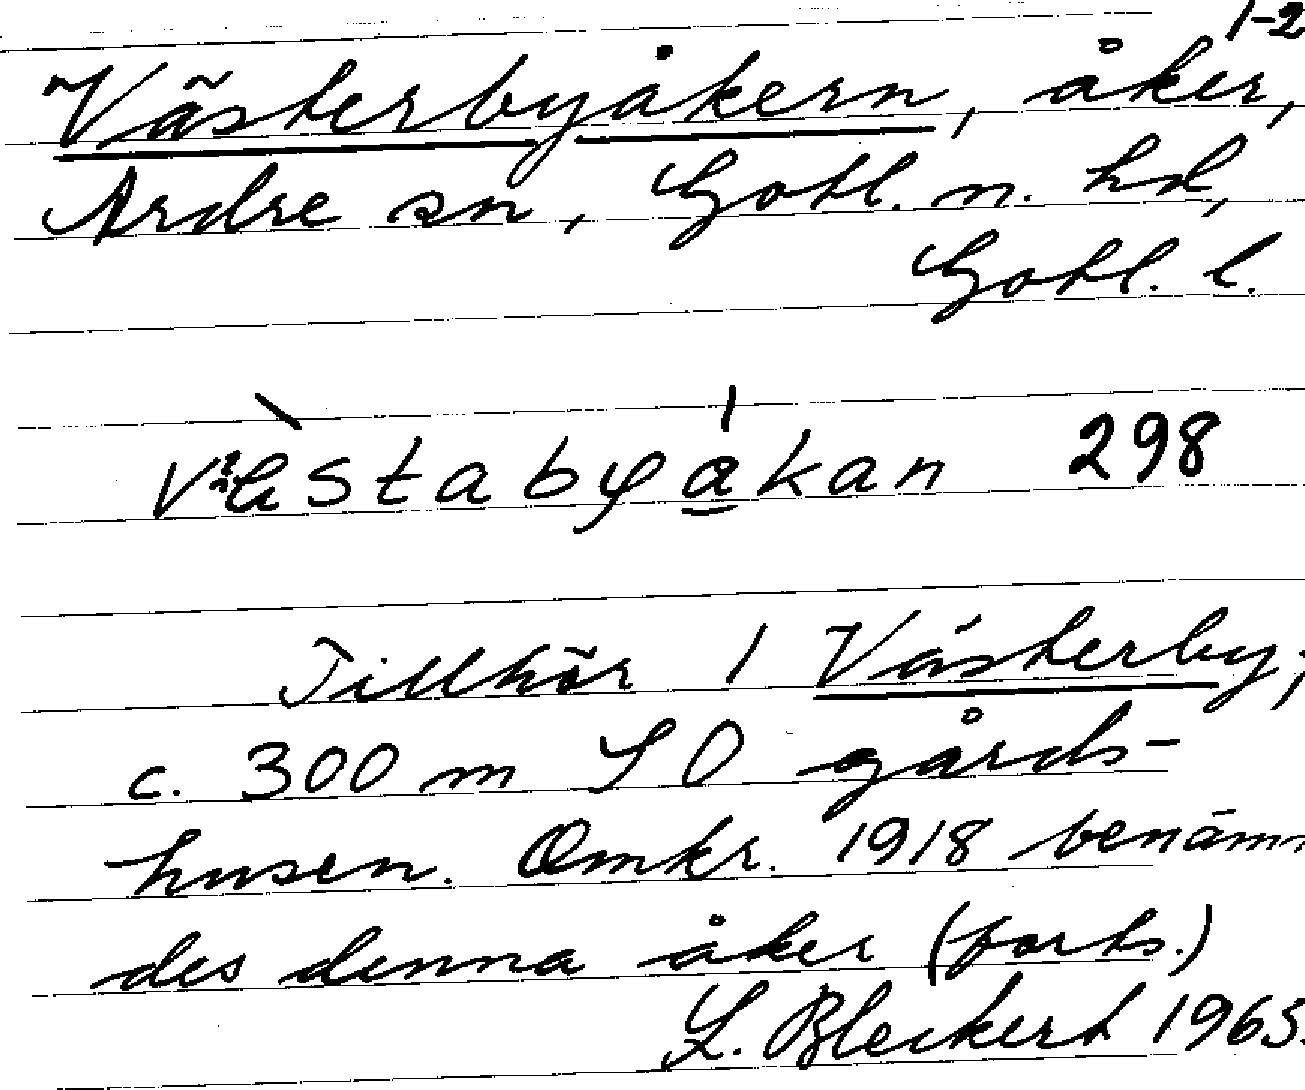 1-2
Västerbyåkern, åker,
Ardre sn, Gotl. n. hd,
Gotl. l.
västabyakan 298
Tillhör 1 Västerby;
c. 300 m SO gårds-
husen. Omkr. 1918 benämn
des denna åker (forts.)
L. Bleckert 1965.